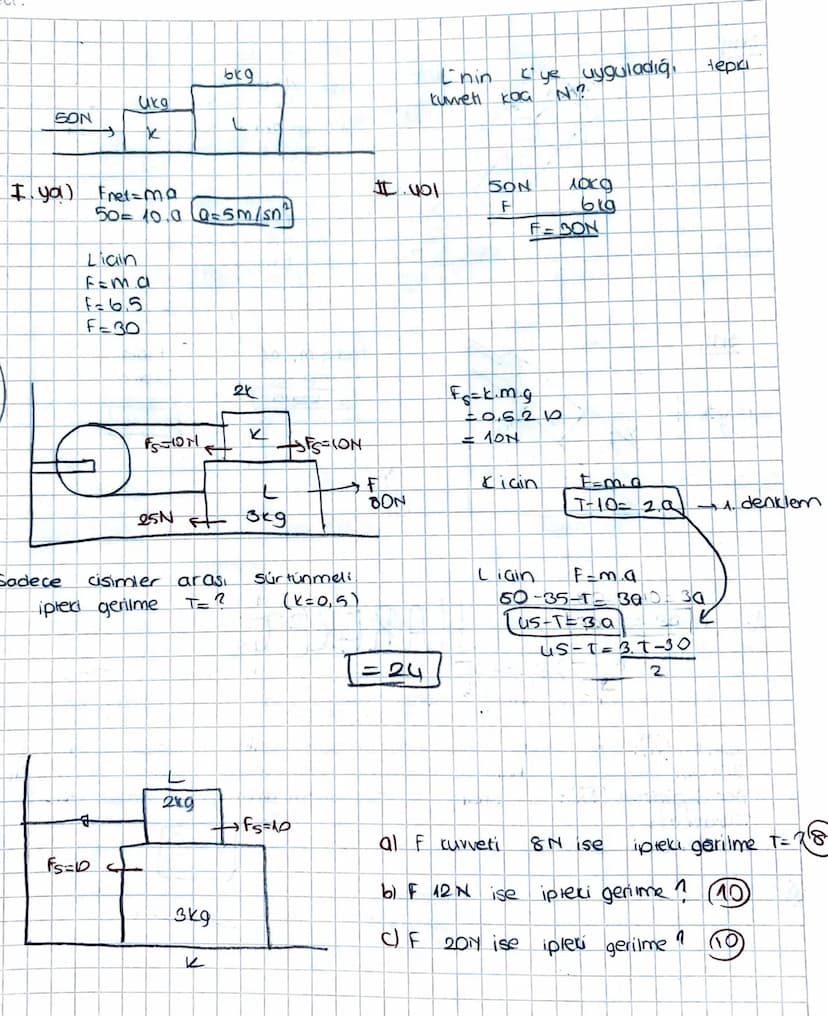 6kg
L'nin K'ye uyguladığı tepki
kuvveti kaç N?
4kg
50N
K
L
I. yol) Fnet=m.a
50= 10.a a=5m/sn²
II. yol
50N 10kg
F 6kg
F=30N
L için
F=m.a
F=6.5
F=30
2k
K
Fs=10N
Fs=10N
L
3kg
F
80N
25N
Fs=k.m.g
=0,5.2.10
= 10N
K için F=m.a
T-10= 2.a → 1. denklem
Sadece cisimler arası sürtünmeli
ipteki gerilme T=? (k=0,5)
L için F=m.a
80-35-T= 3a
45-T=3.a
45-T= 3.T-30
2
= 24
L
2kg
Fs=10
Fs=10
3kg
K
a) F kuvveti 8N ise ipteki gerilme T=? 8
b) F 12N ise ipteki gerilme? 10
c) F 20N ise ipteki gerilme? 10